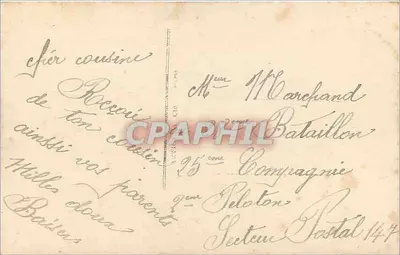 cher cousine
Reçoit
de ton cousin
ainsi vos parents
Milles doux
Baisers
Meur Marchand
Bataillon
25eme Compagnie
2eme Peloton
Secteur Postal 147
CPAPHIL